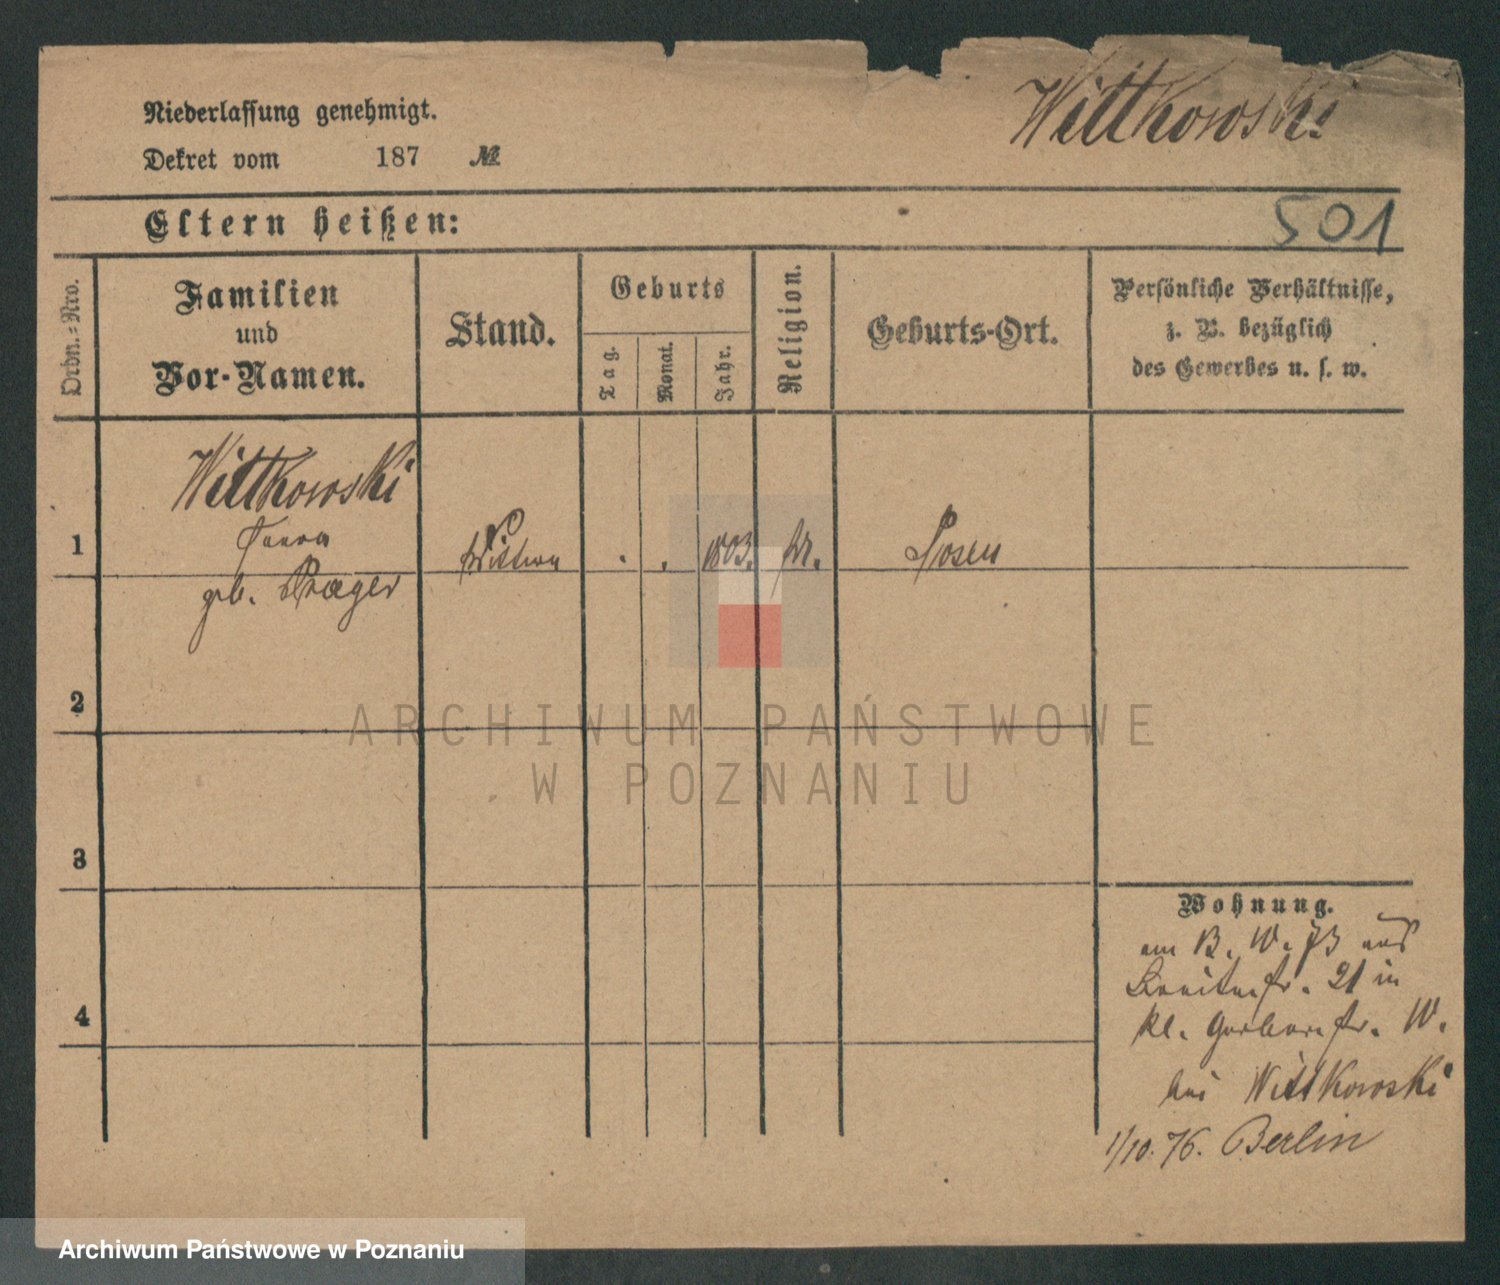 Wittkowski
Niederlassung genehmigt.
Dekret vom 187 №
Eltern heißen:
501
Ordn.=Nro.
Familien
und
Vor-Namen.
Stand.
Geburts
Tag.
Monat.
Jahr.
Religion.
Geburts-Ort.
Persönliche Verhältnisse,
z. B. bezüglich
des Gewerbes u. s. w.
Wittkowski
geb. Praeger
1
Wittwe
1803.
Posen
2
3
4
Wohnung.
B. W. aus
Breitestr. 21 in
kl. Gerberstr. W.
bei Wittkowski
1/10. 76. Berlin
ARCHIWUM PAŃSTWOWE
W POZNANIU
Archiwum Państwowe w Poznaniu